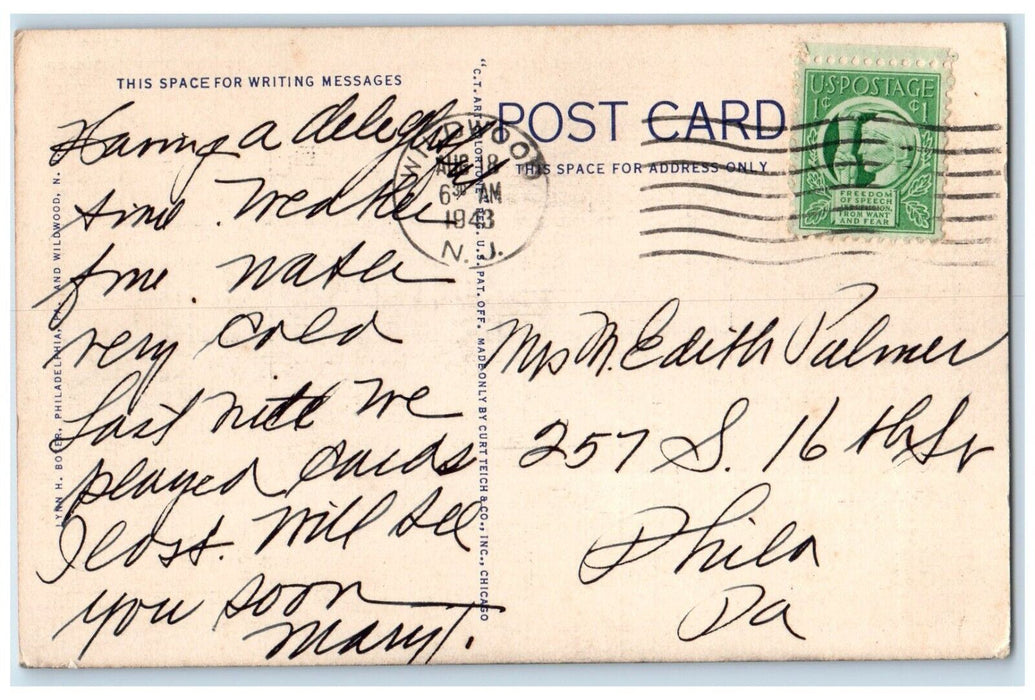 THIS SPACE FOR WRITING MESSAGES
Having a delightful
time. Weather
fine. Water
very cold
Last nite we
played cards
I lost. Will see
you soon
Mary T.
LYNN H. BOYER, PHILADELPHIA, PA. AND WILDWOOD, N. J.
"C.T. ART-COLORTONE" REG. U.S. PAT. OFF. MADE ONLY BY CURT TEICH & CO., INC., CHICAGO
POST CARD
THIS SPACE FOR ADDRESS ONLY
WILDWOOD
AUG 18
6 30 AM
1943
N. J.
U.S. POSTAGE
1¢ ¢1
FREEDOM
OF SPEECH
AND RELIGION,
FROM WANT
AND FEAR
Mrs M. Edith Palmer
257 S. 16 th St
Phila
Pa